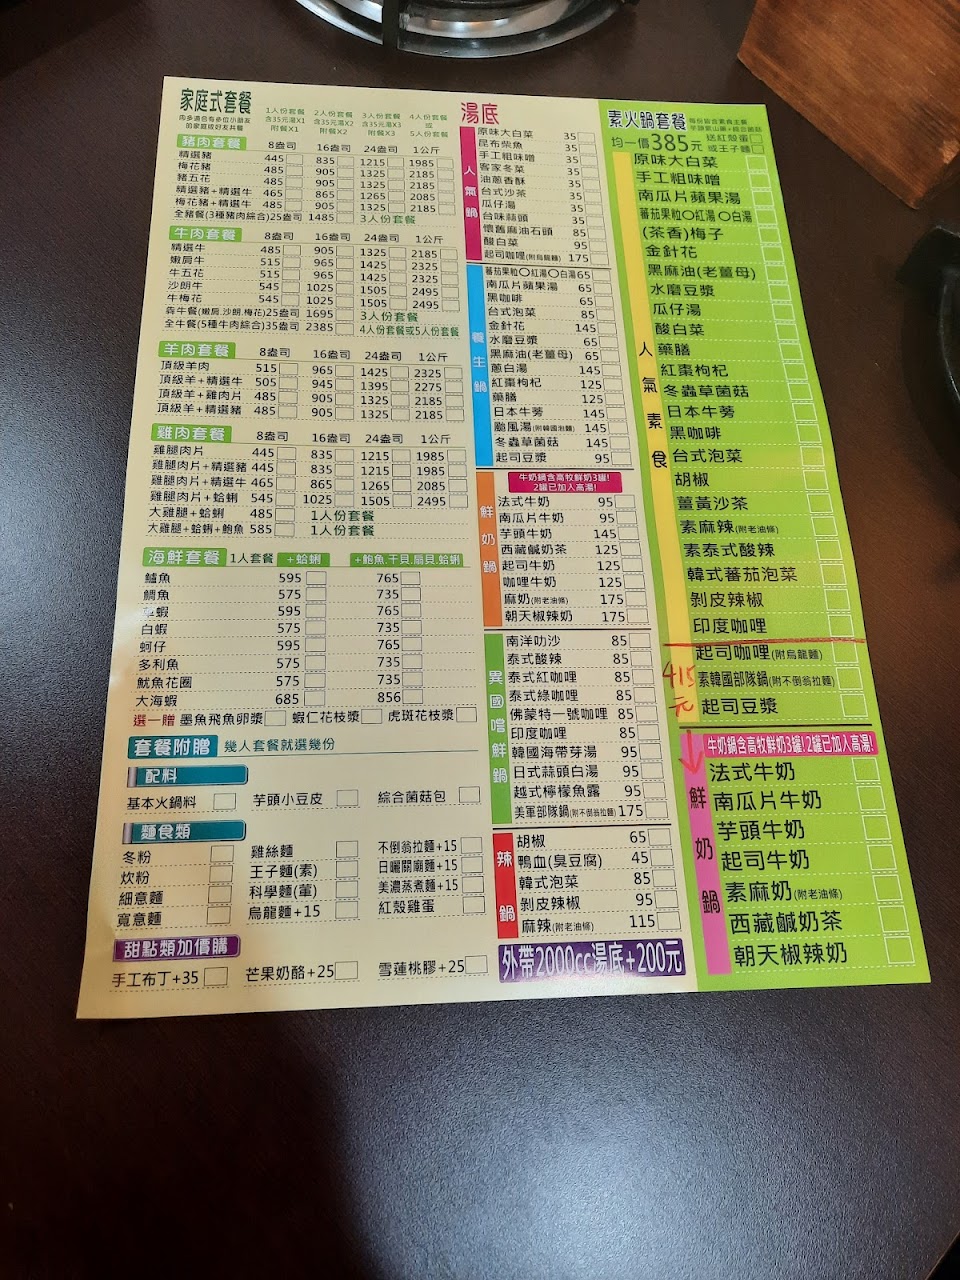 家庭式套餐
肉多適合有多位小朋友
的家庭或好友共餐
1人份套餐 2人份套餐 3人份套餐 4人份套餐
含35元湯X1 含35元湯X2 含35元湯X3 或
附餐X1 附餐X2 附餐X3 5人份套餐
豬肉套餐 8盎司 16盎司 24盎司 1公斤
精選豬 445 835 1215 1985
梅花豬 485 905 1325 2185
豬五花 485 905 1325 2185
精選豬+精選牛 465 865 1265 2085
梅花豬+精選牛 485 905 1325 2185
全豬餐(3種豬肉綜合)25盎司 1485 3人份套餐
牛肉套餐 8盎司 16盎司 24盎司 1公斤
精選牛 485 905 1325 2185
嫩肩牛 515 965 1425 2325
牛五花 515 965 1425 2325
沙朗牛 545 1025 1505 2495
牛梅花 545 1025 1505 2495
犇牛餐(嫩肩.沙朗.梅花)25盎司 1695 3人份套餐
全牛餐(5種牛肉綜合)35盎司 2385 4人份套餐或5人份套餐
羊肉套餐 8盎司 16盎司 24盎司 1公斤
頂級羊肉 515 965 1425 2325
頂級羊+精選牛 505 945 1395 2275
頂級羊+雞肉片 485 905 1325 2185
頂級羊+精選豬 485 905 1325 2185
雞肉套餐 8盎司 16盎司 24盎司 1公斤
雞腿肉片 445 835 1215 1985
雞腿肉片+精選豬 445 835 1215 1985
雞腿肉片+精選牛 465 865 1265 2085
雞腿肉片+蛤蜊 545 1025 1505 2495
大雞腿+蛤蜊 485 1人份套餐
大雞腿+蛤蜊+鮑魚 585 1人份套餐
海鮮套餐 1人套餐 +蛤蜊 +鮑魚.干貝.扇貝.蛤蜊
鱸魚 595 765
鯛魚 575 735
草蝦 595 765
白蝦 575 735
蚵仔 595 765
多利魚 575 735
魷魚花圈 575 735
大海蝦 685 856
選一贈 墨魚飛魚卵漿 蝦仁花枝漿 虎斑花枝漿
套餐附贈 幾人套餐就選幾份
配料
基本火鍋料 芋頭小豆皮 綜合菌菇包
麵食類
冬粉 雞絲麵 不倒翁拉麵+15
炊粉 王子麵(素) 日曬關廟麵+15
細意麵 科學麵(葷) 美濃蒸煮麵+15
寬意麵 烏龍麵+15 紅殼雞蛋
甜點類加價購
手工布丁+35 芒果奶酪+25 雪蓮桃膠+25
湯底
人氣鍋
原味大白菜 35
昆布柴魚 35
手工粗味噌 35
客家冬菜 35
油蔥香酥 35
台式沙茶 35
瓜仔湯 35
台味蒜頭 35
懷舊麻油石頭 85
酸白菜 95
起司咖哩(附烏龍麵) 175
養生鍋
蕃茄果粒〇紅湯〇白湯65
南瓜片蘋果湯 65
黑咖啡 65
台式泡菜 85
金針花 145
水磨豆漿 65
黑麻油(老薑母) 65
蔥白湯 145
紅棗枸杞 125
藥膳 125
日本牛蒡 145
颱風湯(附韓國泡麵) 145
冬蟲草菌菇 145
起司豆漿 95
牛奶鍋含高牧鮮奶3罐!
2罐已加入高湯!
鮮奶鍋
法式牛奶 95
南瓜片牛奶 95
芋頭牛奶 145
西藏鹹奶茶 125
起司牛奶 125
咖哩牛奶 125
麻奶(附老油條) 175
朝天椒辣奶 175
異國嚐鮮鍋
南洋叻沙 85
泰式酸辣 85
泰式紅咖哩 85
泰式綠咖哩 85
佛蒙特一號咖哩 85
印度咖哩 85
韓國海帶芽湯 95
日式蒜頭白湯 95
越式檸檬魚露 95
美軍部隊鍋(附不倒翁拉麵) 175
辣鍋
胡椒 65
鴨血(臭豆腐) 45
韓式泡菜 85
剝皮辣椒 95
麻辣(附老油條) 115
外帶2000cc湯底+200元
素火鍋套餐
每份皆含素肉主餐
均一價385元
送紅殼蛋
或王子麵
人氣素食
原味大白菜
手工粗味噌
南瓜片蘋果湯
蕃茄果粒〇紅湯 〇白湯
(茶香)梅子
金針花
黑麻油(老薑母)
水磨豆漿
瓜仔湯
酸白菜
藥膳
紅棗枸杞
冬蟲草菌菇
日本牛蒡
黑咖啡
台式泡菜
胡椒
薑黃沙茶
素麻辣(附老油條)
素泰式酸辣
韓式蕃茄泡菜
剝皮辣椒
印度咖哩
起司咖哩(附烏龍麵)
素韓國部隊鍋(附不倒翁拉麵)
起司豆漿
415元
牛奶鍋含高牧鮮奶3罐!2罐已加入高湯!
鮮奶鍋
法式牛奶
南瓜片牛奶
芋頭牛奶
起司牛奶
素麻奶(附老油條)
西藏鹹奶茶
朝天椒辣奶